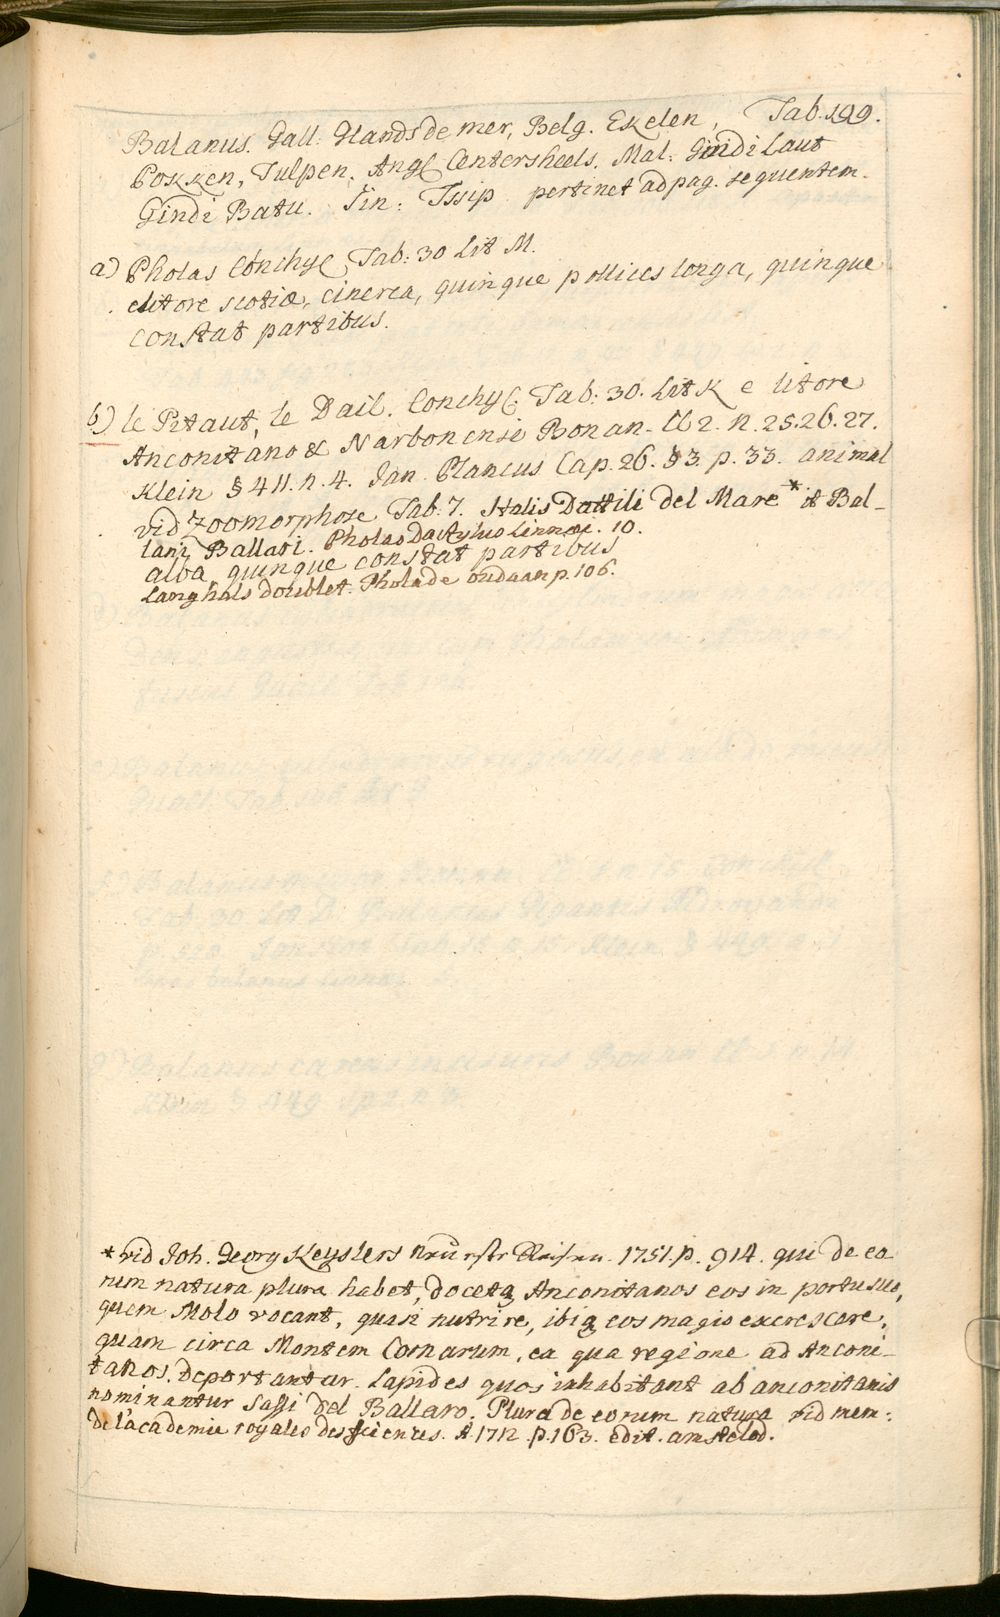 Tab. 199.
Balanus. Gall. Glands de mer, Belg. Ekelen,
Pokken, Tulpen. Angl Centersheels. Mal: Gindi Laut
Gindi Batu. Sin: Tssip pertinet ad pag. sequentem.
a) Pholas Conchyl Tab: 30 Lit M.
e litore scotiæ, cinerea, quinque pollices longa, quinque
constat partibus.
b) le Pitaut, le Dail. Conchyl. Tab: 30. Lit K e litore
Anconitano & Narbonensi Bonan. Cl 2. n. 25. 26. 27.
Klein § 411. n. 4. Jan Plancus Cap. 26. § 3. p. 33. animal
vid Zoomorphose Tab. 7. Italis Dattili del Mare * it Bal-
lani Ballari. Pholas Dactylus Linnæi. 10.
alba, quinque constat partibus
Langhals doublet. Pholade oudaan p. 106.
* vid Joh. Georg Keyslers Reisen. 1751. p. 914. qui de eo
rum natura plura habet, docetq Anconitanos eos in portu suo,
quem Molo vocant, quasi nutrire, ibiq eos magis excrescere,
quam circa Montem Cornarum, ea qua regione ad Anconi-
tanos deportantur. Lapides quos inhabitant ab anconitanis
nominantur Sassi del Ballaro. Plura de eorum natura vid mem:
de l'academie royales des sciences. A. 1712. p. 163. edit. amstelod.